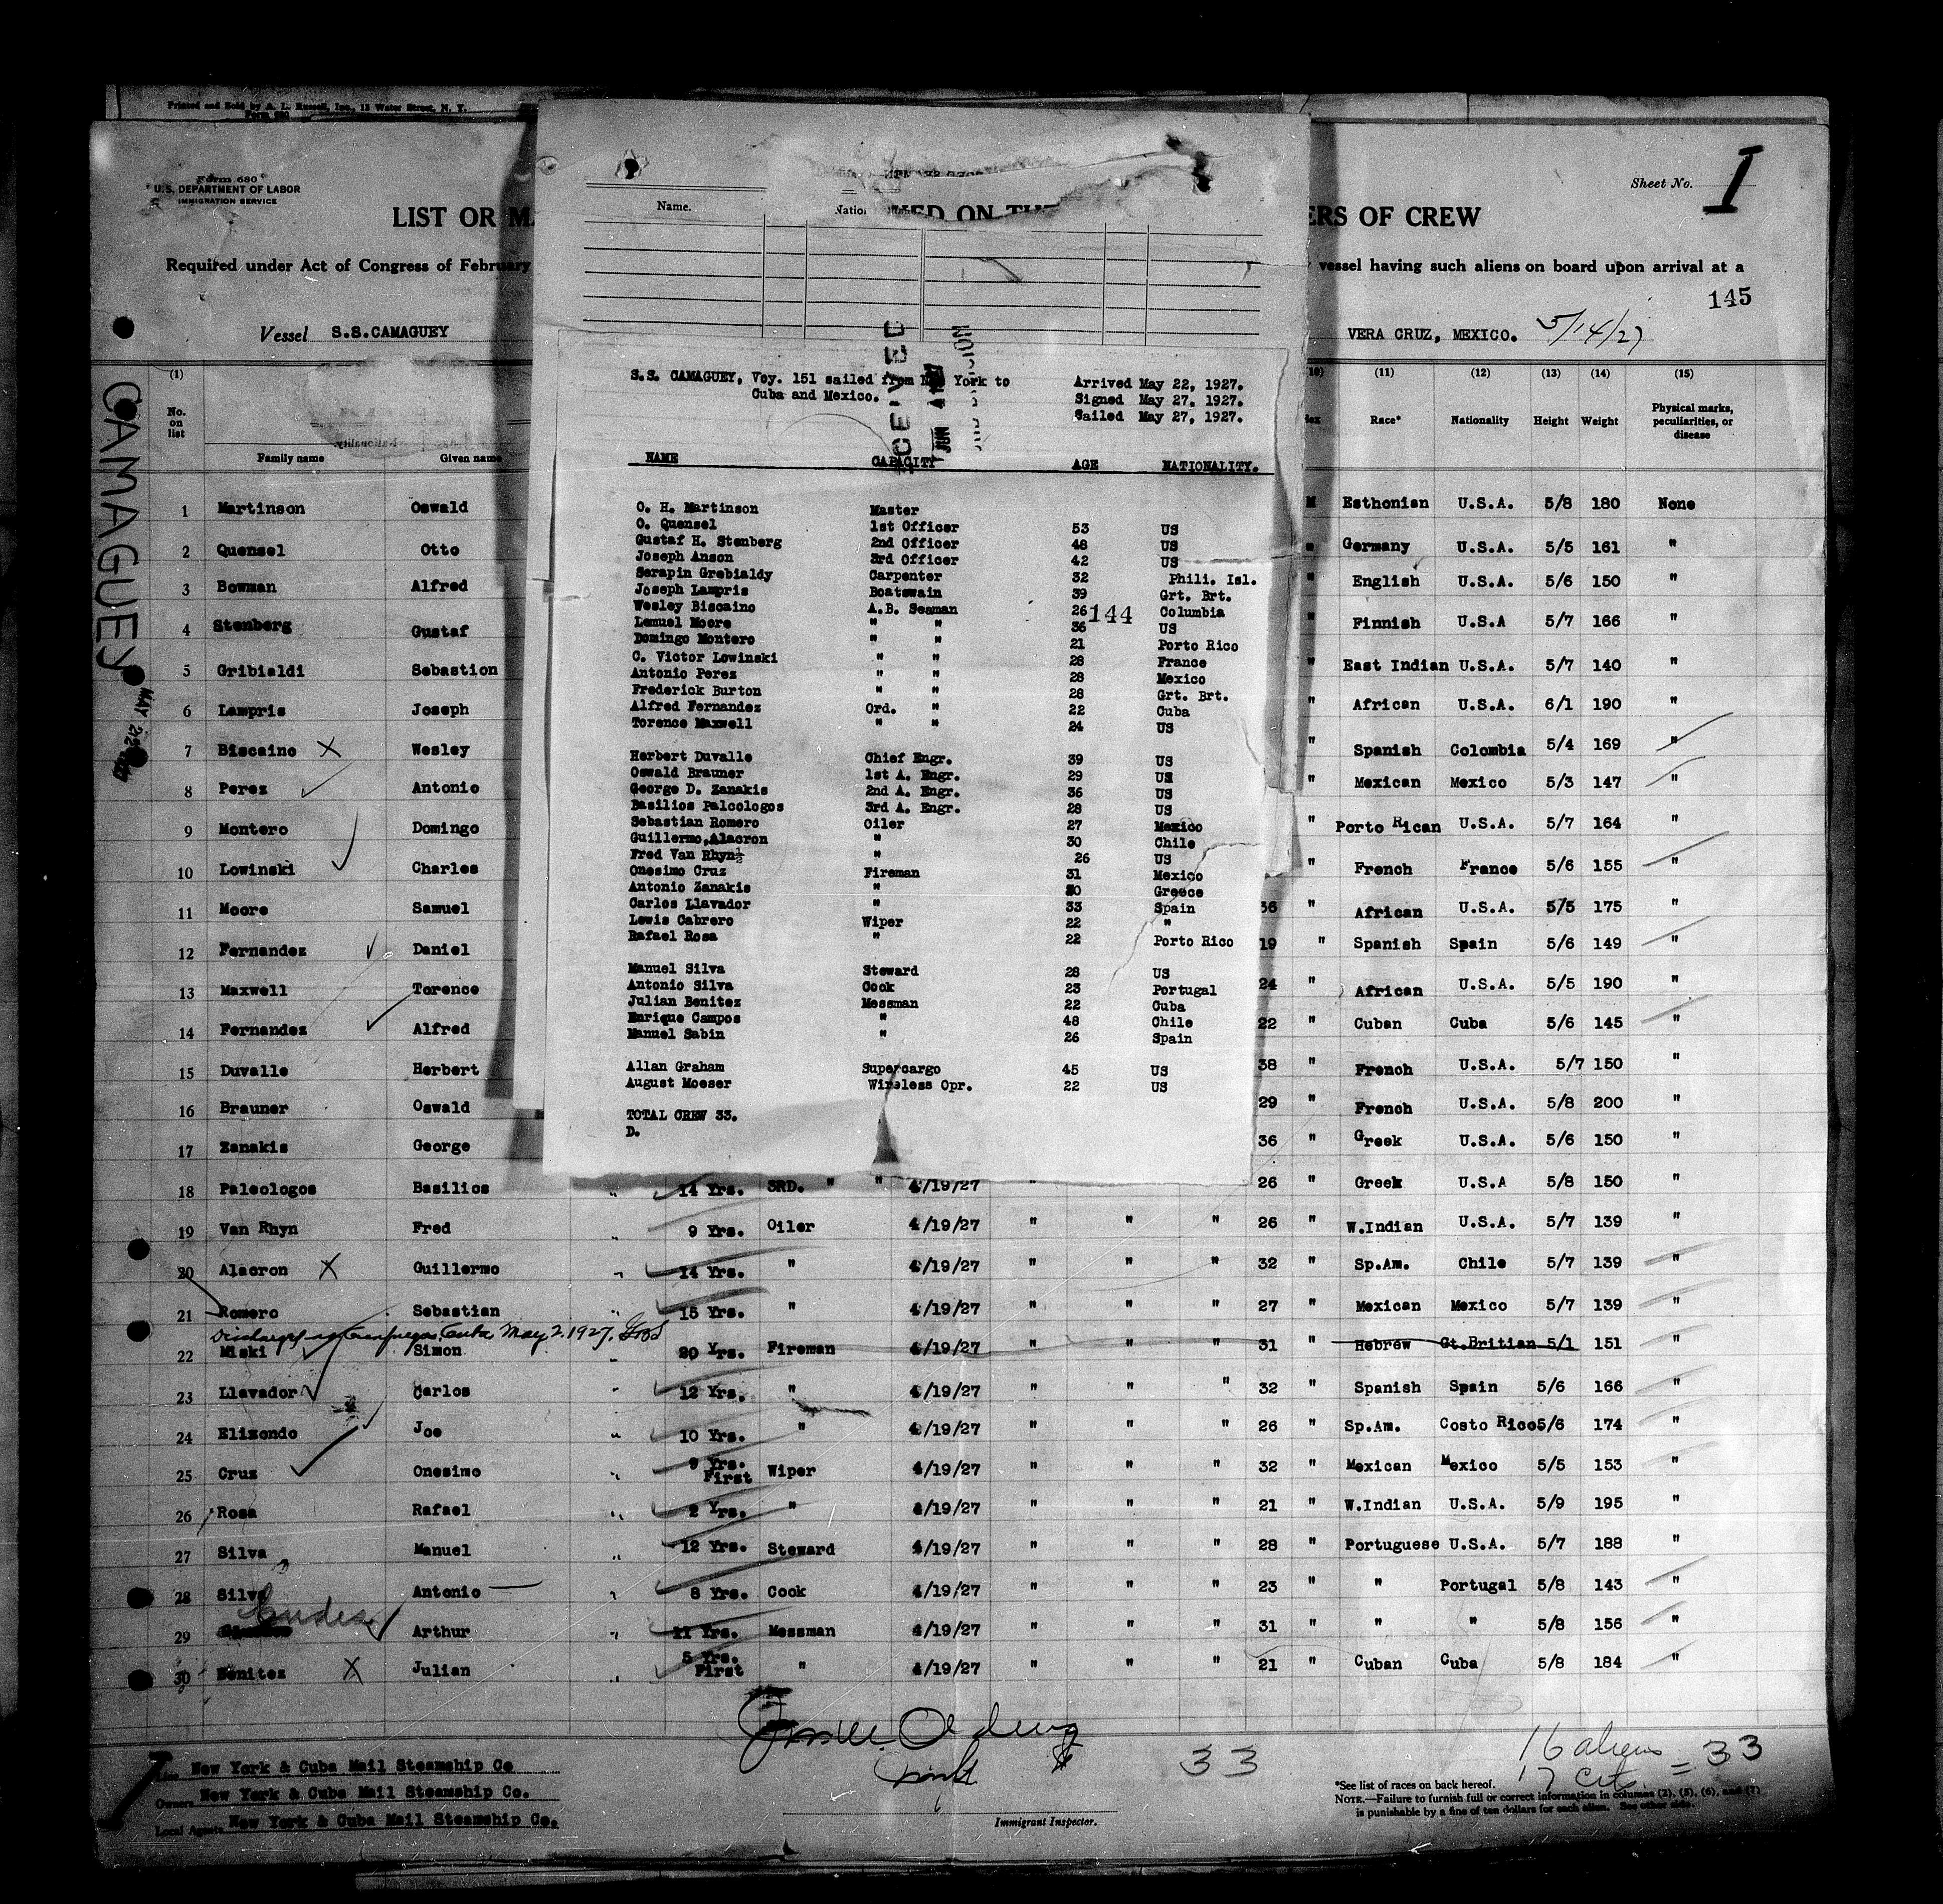 Printed and Sold by A. L. Russell, Inc., 13 Water Street, N. Y.
Form 680
U.S. DEPARTMENT OF LABOR
IMMIGRATION SERVICE
Sheet No. 1
LIST OR MA
ERS OF CREW
Required under Act of Congress of February
vessel having such aliens on board upon arrival at a
145
Vessel S.S.CAMAGUEY
VERA CRUZ, MEXICO. 5/14/27
CAMAGUEY
Name.
S.S. CAMAGUEY, Voy. 151 sailed from New York to
Cuba and Mexico.
Arrived May 22, 1927.
Signed May 27, 1927.
Sailed May 27, 1927.
NAME CAPACITY AGE NATIONALITY.
O. H. Martinson Master
O. Quensel 1st Officer 53 US
Gustaf H. Stenberg 2nd Officer 48 US
Joseph Anson 3rd Officer 42 US
Serapin Grebialdy Carpenter 32 Phili. Isl.
Joseph Lampris Boatswain 39 Grt. Brt.
Wesley Biscaino A.B. Seaman 26 Columbia
144
Lemuel Moore " " 36 US
Domingo Montero " " 21 Porto Rico
C. Victor Lowinski " " 28 France
Antonio Perez " " 28 Mexico
Frederick Burton " " 28 Grt. Brt.
Alfred Fernandez Ord. " 22 Cuba
Torence Maxwell " " 24 US
Herbert Duvalle Chief Engr. 39 US
Oswald Brauner 1st A. Engr. 29 US
George D. Zanakis 2nd A. Engr. 36 US
Basilios Palcologos 3rd A. Engr. 28 US
Sebastian Romero Oiler 27 Mexico
Guillermo Alacron " 30 Chile
Fred Van Rhyn " 26 US
Onesimo Cruz Fireman 31 Mexico
Antonio Zanakis " 30 Greece
Carlos Llavador " 33 Spain
Lewis Cabrero Wiper 22 "
Rafael Rosa " 22 Porto Rico
Manuel Silva Steward 28 US
Antonio Silva Cook 23 Portugal
Julian Benitez Messman 22 Cuba
Enrique Campos " 48 Chile
Manuel Sabin " 26 Spain
Allan Graham Supercargo 45 US
August Moeser Wireless Opr. 22 US
TOTAL CREW 33.
D.
(1) (11) (12) (13) (14) (15)
No. on list Family name Given name Race* Nationality Height Weight Physical marks, peculiarities, or disease
1 Martinson Oswald M Esthonian U.S.A. 5/8 180 None
2 Quensel Otto " Germany U.S.A. 5/5 161 "
3 Bowman Alfred " English U.S.A. 5/6 150 "
4 Stenberg Gustaf " Finnish U.S.A 5/7 166 "
5 Gribialdi Sebastion " East Indian U.S.A. 5/7 140 "
6 Lampris Joseph " African U.S.A. 6/1 190 "
7 Biscaino X Wesley " Spanish Colombia 5/4 169 "
8 Perez Antonio " Mexican Mexico 5/3 147 "
9 Montero Domingo " Porto Rican U.S.A. 5/7 164 "
10 Lowinski Charles " French France 5/6 155 "
11 Moore Samuel 36 " African U.S.A. 5/5 175 "
12 Fernandez Daniel 19 " Spanish Spain 5/6 149 "
13 Maxwell Torence 24 " African U.S.A. 5/5 190 "
14 Fernandez Alfred 22 " Cuban Cuba 5/6 145 "
15 Duvalle Herbert 38 " French U.S.A. 5/7 150 "
16 Brauner Oswald 29 " French U.S.A. 5/8 200 "
17 Zanakis George 36 " Greek U.S.A. 5/6 150 "
18 Paleologos Basilios " 14 Yrs. 3RD. " " 4/19/27 " 26 " Greek U.S.A 5/8 150 "
19 Van Rhyn Fred " 9 Yrs. Oiler 4/19/27 " " " 26 " W.Indian U.S.A. 5/7 139 "
20 Alacron X Guillermo " 14 Yrs. " 4/19/27 " " " 32 " Sp.Am. Chile 5/7 139 "
21 Romero Sebastian " 15 Yrs. " 4/19/27 " " " 27 " Mexican Mexico 5/7 139 "
Discharged at Cienfuegos, Cuba May 2. 1927.
22 Miski Simon 20 Yrs. Fireman 4/19/27 " " " 31 " Hebrew Gt.Britian 5/1 151 "
23 Llavador Carlos " 12 Yrs. " 4/19/27 " " " 32 " Spanish Spain 5/6 166 "
24 Elizondo Joe " 10 Yrs. " 4/19/27 " " " 26 " Sp.Am. Costo Rico 5/6 174 "
25 Cruz Onesimo " 9 Yrs. First Wiper 4/19/27 " " " 32 " Mexican Mexico 5/5 153 "
26 Rosa Rafael " 2 Yrs. " 4/19/27 " " " 21 " W.Indian U.S.A. 5/9 195 "
27 Silva Manuel " 12 Yrs. Steward 4/19/27 " " " 28 " Portuguese U.S.A. 5/7 188 "
28 Silva Antonio " 8 Yrs. Cook 4/19/27 " " " 23 " " Portugal 5/8 143 "
29 Arthur " 11 Yrs. Messman 4/19/27 " " " 31 " " " 5/8 156 "
30 Benitez X Julian " 5 Yrs. First " 4/19/27 " " " 21 " Cuban Cuba 5/8 184 "
33
16 aliens
17 Cits. = 33
New York & Cuba Mail Steamship Co
Owners New York & Cuba Mail Steamship Co.
Local Agents New York & Cuba Mail Steamship Co.
Immigrant Inspector.
*See list of races on back hereof.
NOTE.—Failure to furnish full or correct information in columns (2), (5), (6), and (7)
is punishable by a fine of ten dollars for each alien. See other side.